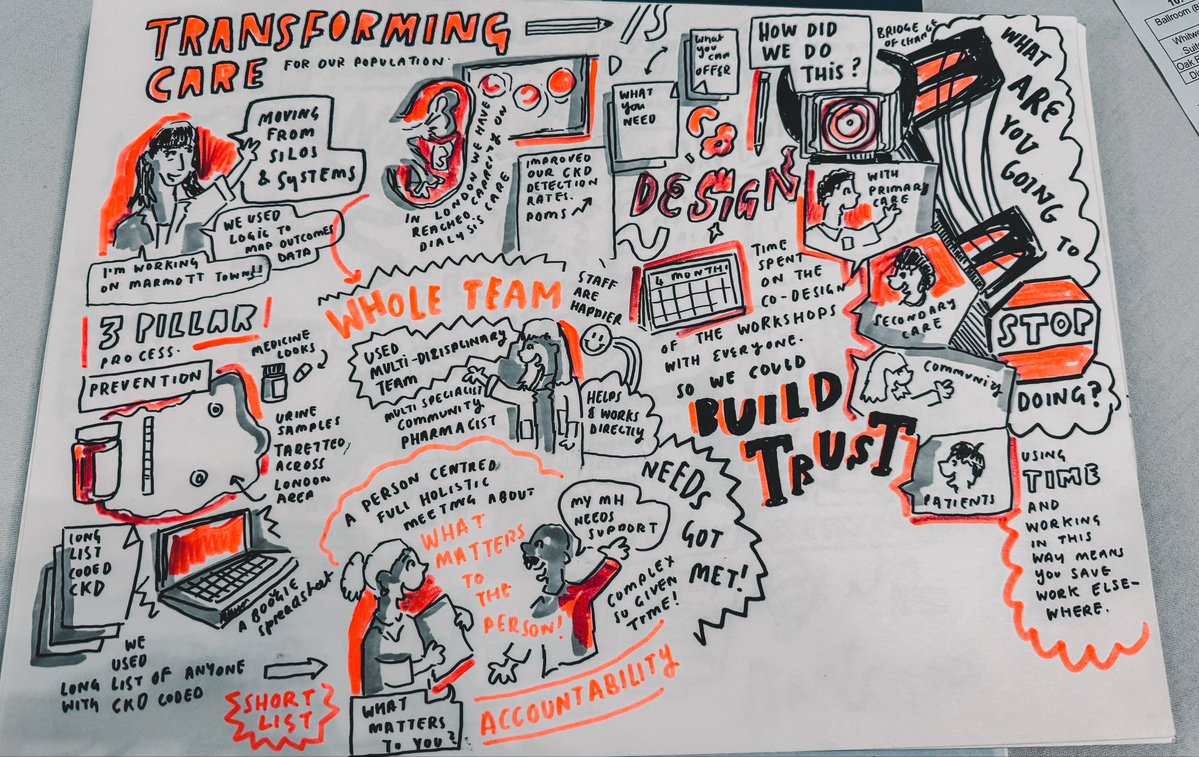 TRANSFORMING
CARE
FOR OUR POPULATION.
MOVING
FROM
SILOS
& SYSTEMS
WE USED
LOGIC TO
MAP OUTCOMES
DATA
I'M WORKING
ON MARMOTT TOWN!!
IN LONDON WE HAVE
REACHED CAPACITY ON
DIALYSIS CARE
IMPROVED
OUR CKD
DETECTION
RATES.
WHAT
YOU
NEED
WHAT
YOU CAN
OFFER
HOW DID
WE DO
THIS?
BRIDGE OF CHANGE
DESIGN
WITH
PRIMARY
CARE
SECONDARY
CARE
COMMUNITY
PATIENTS
WHAT
ARE
YOU
GOING
TO
STOP
DOING?
USING
TIME
AND
WORKING
IN THIS
WAY MEANS
YOU SAVE
WORK ELSE-
WHERE.
4 MONTH!
TIME
SPENT
ON THE
CO-DESIGN
OF THE WORKSHOPS
WITH EVERYONE.
SO WE COULD
BUILD
TRUST
WHOLE TEAM
STAFF
ARE
HAPPIER
USED
MULTI-DIZISIPLINARY
TEAM
MULTI SPECIALIST
COMMUNITY
PHARMACIST
HELPS
& WORKS
DIRECTLY
3 PILLAR
PROCESS.
PREVENTION
MEDICINE
LOOKS
URINE
SAMPLES
TARETTED
ACROSS
LONDON
AREA
LONG
LIST
CODED
CKD
A BOOGIE
SPREADSHEET
WE
USED
LONG LIST OF ANYONE
WITH CKD CODED
SHORT
LIST
A PERSON CENTRED
FULL HOLISTIC
MEETING ABOUT
WHAT
MATTERS
TO
THE
PERSON!
MY MH
NEEDS
SUPPORT
COMPLEX
SO GIVEN
TIME!
NEEDS
GOT
MET!
WHAT
MATTERS
TO YOU?
ACCOUNTABILITY